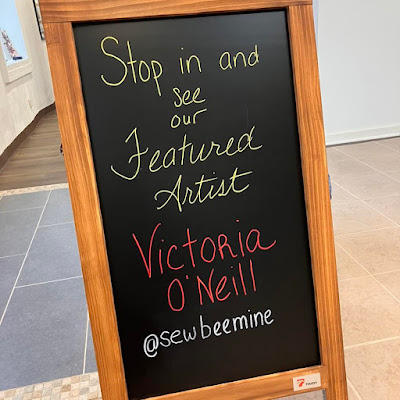 Stop in and
see
our
Featured
Artist
Victoria
O'Neill
@sewbeemine